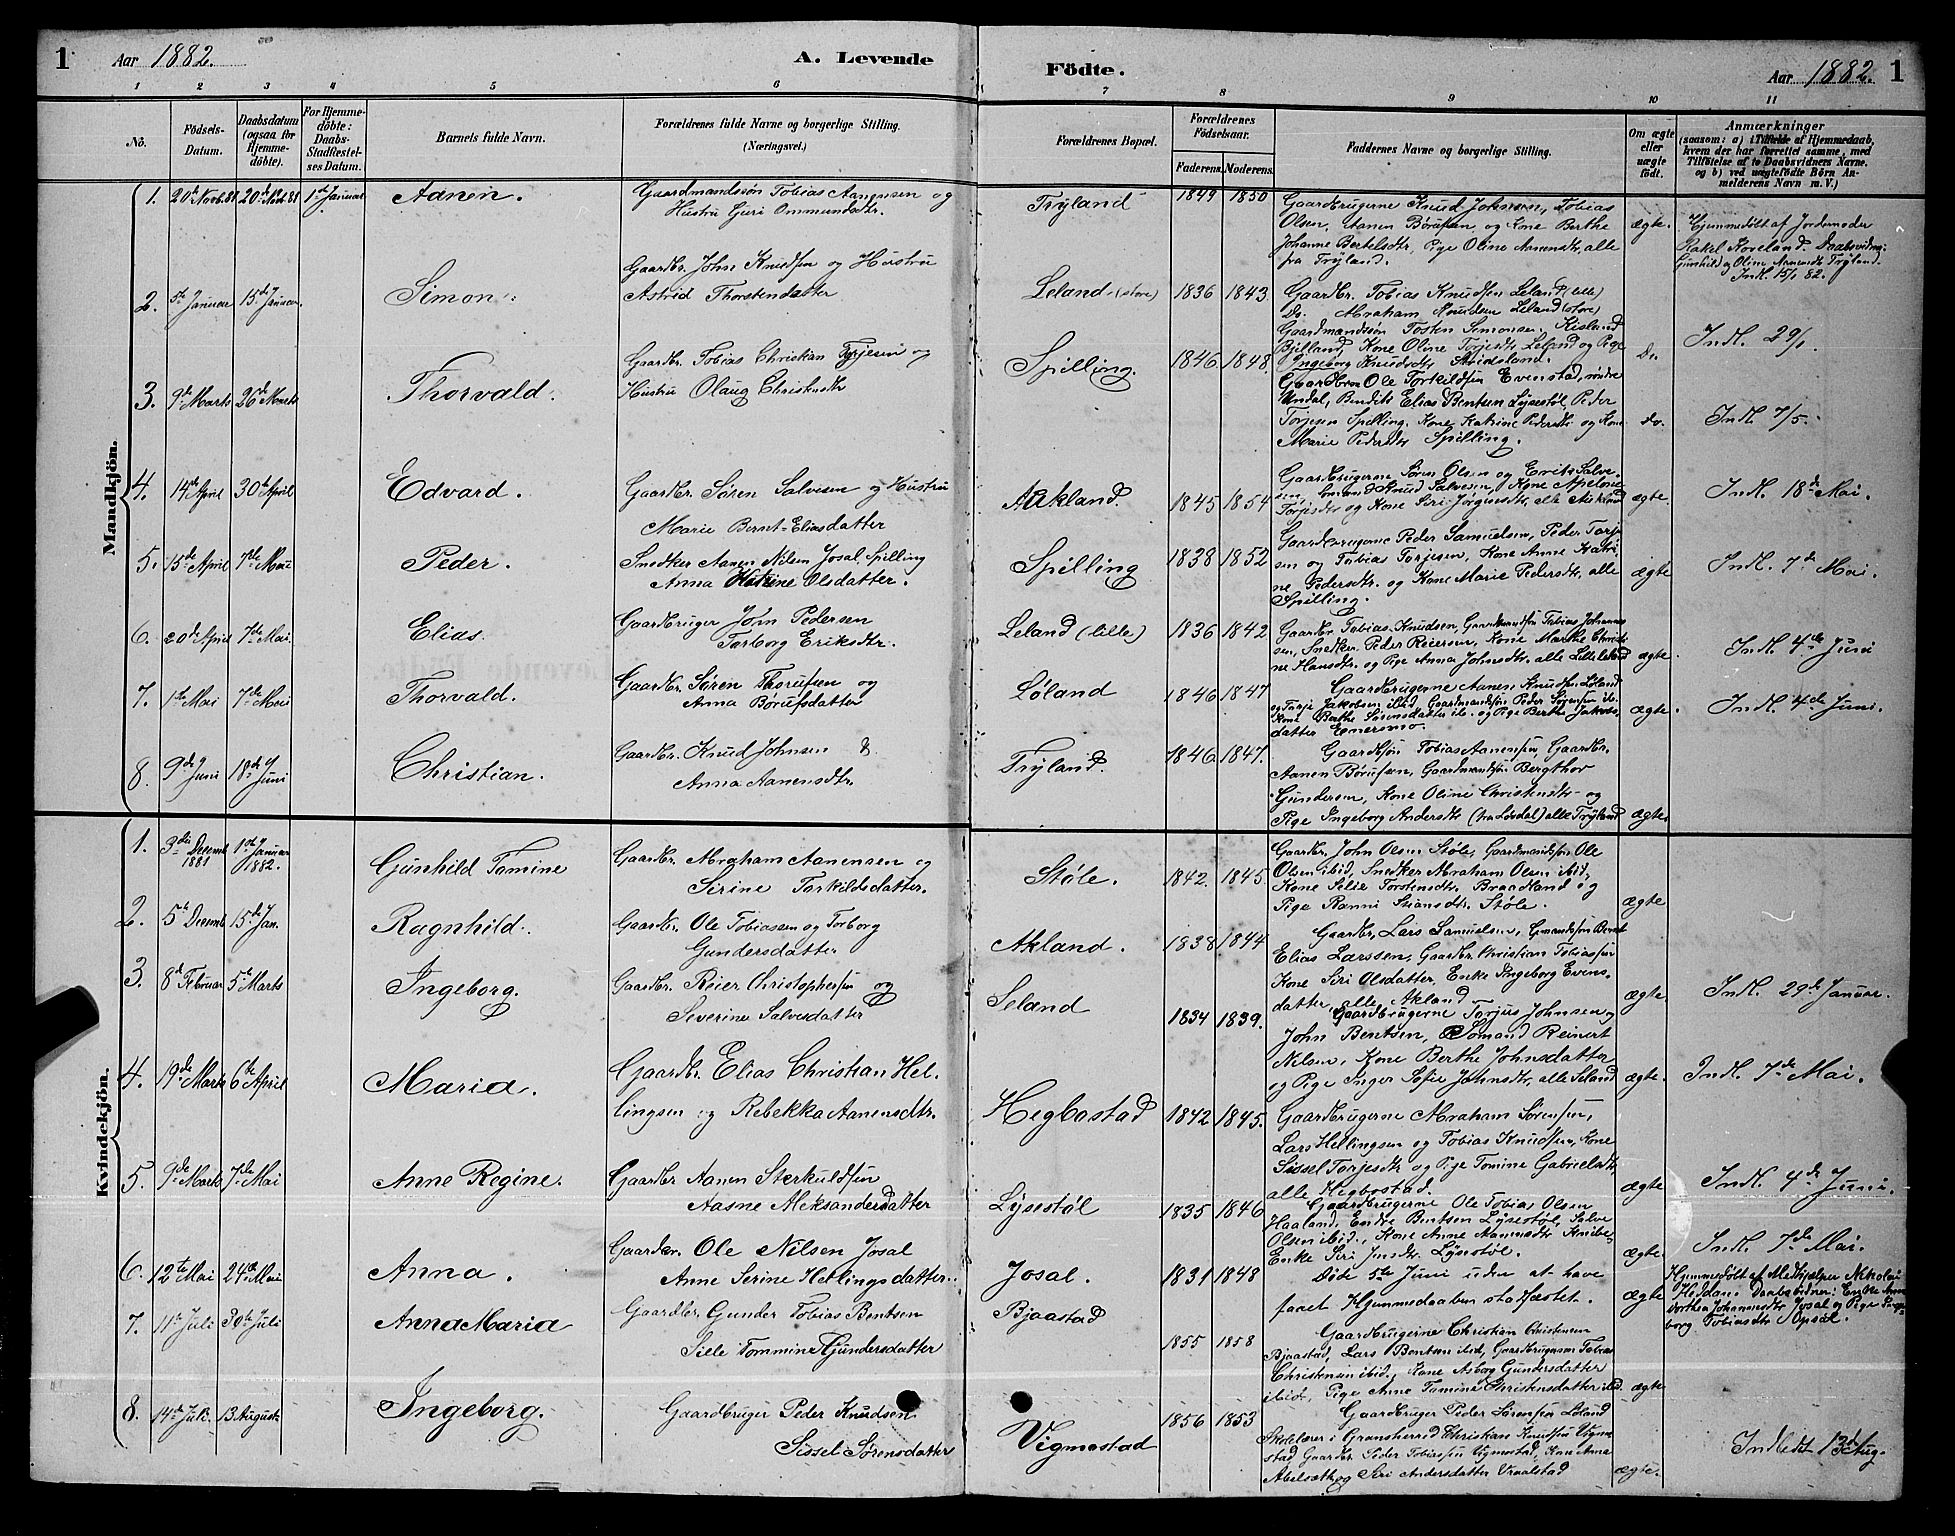 1
Aar 1882.
A. Levende
Födte.
Aar 1882.
1
1 2 3 4 5 6 7 8 9 10 11
No.
Födsels-Datum.
Daabsdatum (ogsaa for Hjemmedöbte).
For Hjemmedöbte: Daabs-Stadfæstelses Datum.
Barnets fulde Navn.
Forældrenes fulde Navne og borgerlige Stilling.
(Næringsvei.)
Forældrenes Bopæl.
Forældrenes Födselsaar.
Faderens. Moderens.
Faddernes Navne og borgerlige Stilling.
Om ægte eller uægte födt.
Anmærkninger
(saasom: a) i Tilfælde af Hjemmedaab,
hvem der har forrettet samme, med
Tilföielse af to Daabsvidners Navne.
og b) ved uægtefödte Börn An-
melderens Navn m. V.)
Mandkjön.
1. 20de Novb. 81 20de Novb 81 1ste Januar Aanen. Gaardmandssøn Tobias Aanensen og
Hustru Guri Ommundsdtr.
Trÿland 1849 1850
Gaardbrugerne Knud Johnsen, Tobias
Olsen, Aanen Børufsen, og Kone Berthe
Johanne Bertelsdtr, Pige Oline Anensdtr, alle
fra Trÿland.
ægte.
Hjemmedöbt af Jordemoder
Rakel Koveland. Daabsvidner
Gunhild og Oline Anensdtr Trÿland.
Indl. 15/1 82.
2. 5te Januar 15de Januar. Simon. Gaardbr. John Knudsen og Hustru
Astrid Thorstendatter
Leland (store) 1836 1843
Gaardbr. Tobias Knudsen Leland (lille)
Do. Abraham Knudsen Leland (store)
Gaardmandssøn Tosten Simonsen, Kisland
Bjelland, Kone Oline Torjesdtr Leland og Pige
Ingeborg Knudsdtr
Do
Indl. 29/1.
3. 9de Marts 26de Marts Thorvald. Gaardbr. Tobias Christian Torjesen og
Hustru Olaug Christensdtr
Spilling. 1846. 1848.
Gaardbrn Ole Torkildsen Evenstad, søndre
Undal, Bendits Elias Bentsen Lÿsestøl, Peder
Torjesen Spilling. Kone Katrine Pedersdtr og Kone
Marie Pedersdtr Spilling.
do.
Indl. 7/5.
4. 14de April 30te April Edvard. Gaardbr. Søren Salvesen og Hustru
Marie Bernt-Eliasdatter
Aikland. 1845 1854
Gaardbrugerne Søren Olsen og Erik Salve-
sen, Knud Salvesen, Kone
Torjesdtr og Kone Siri Jørgensdtr, alle Aikland
ægte
Indl. 18de Mai.
5. 15de April 7de Mai Peder. Snedker Aanen Nilsen Josal, Spilling
Anna Katrine Olsdatter.
Spilling 1838 1852
Gaardbrugerne Peder Samuelsen, Peder Torje-
sen og Tobias Torjesen, Kone Anne Katri-
ne Pedersdtr. og Kone Marie Pedersdtr, alle
Spilling.
ægte
Indl. 7de Mai.
6. 20de April 7de Mai. Elias. Gaardbruger Jörn Pedersen
Torborg Eriksdtr.
Leland (lille) 1836 1842
Gaardbr. Tobias Knudsen, Gaardmandssøn Tobias Johannes-
sen, Snedker Peder Reiersen, Kone Marthe Christi-
ne Hansdtr og Pige Anna Johnsdtr. alle Lille Leland
ægte.
Indl. 4de Juni
7. 1ste Mai 7de Mai Thorvald. Gaardbr. Søren Thorufsen og
Anna Børufsdatter
Løland 1846 1847
Gaardbrugerne Aanen Knudsen Løland
og Tarje Jakobsen ibid, Gaardmandssøn Peder Sørensen ib.
Kone Berthe Sørensdatter ib. og Pige Berthe Jakobs-
datter
ægte.
Indl. 4de Juni.
8. 9de Juni 18de Juni Christian. Gaardbr. Knud Johnsen &
Anna Aanensdtr.
Trÿland. 1846. 1847.
Gaardbr. Tobias Aanensen, Gaardbr.
Aanen Børufsen, Gaardmandssøn Bergthor
Gundersen, Kone Oline Christensdtr og
Pige Ingeborg Andersdtr (fra Løvdal) alle Trÿland
ægte
Kvindekjön.
1. 3die Decemb 1881 1ste Januar 1882. Gunhild Tomine Gaardbr. Abraham Aanensen og
Serine Torkildsdatter.
Støle. 1842. 1845.
Gaardbr. John Olsen Støle, Gaardmandssøn Ole
Olsen ibid, Snedker Abraham Olsen ibid,
Kone Selie Torstensdtr. Braadland og
Pige Ranni Stiansdtr. Støle.
ægte
2. 5te Decemb 15de Jan. Ragnhild. Gaardbr. Ole Tobiassen og Torborg
Gundersdatter
Akland. 1838 1844
Gaardbr. Lars Samuelsen, Gmandssøn Bernt
Elias Larssen, Gaardbr. Christian Tobiassen
Kone Siri Olsdatter, Enke Ingeborg Evens-
datter, alle Akland
ægte
Indl. 29de Januar.
3. 8de Februar 5te Marts Ingeborg. Gaardbr. Reier Christophersen og
Severine Salvesdatter
Leland 1834 1839.
Gaardbrugerne Torjus Johnsen og
John Bentsen, Somand Reinert
Nilsen, Kone Berthe Johnsdatter
og Pige Inger Sofie Johnsdtr, alle Leland
ægte.
Indl. 7de Mai.
4. 19de Marts 6te April Maria. Gaardbr. Elias Christian Hel-
lingsen og Rebekka Aanensdtr.
Hegbostad 1842 1845.
Gaardbrugerne Abraham Sørensen,
Lars Hellingsen og Tobias Knudsen, Kone
Sissel Torjesdtr og Pige Tomine Gabrielsdtr
alle Hegbostad.
ægte
Indl. 4de Juni.
5. 9de Marts 7de Mai Anne Regine. Gaardbr Aanen Sterkuldsen
Aasne Aleksandersdatter
Lÿsestöl 1835 1846
Gaardbrugerne Ole Tobias Olsen
Haaland, Endre Bentsen Lÿsestøl, Salve
Olsen ibid., Kone Anne Aanensdtr
Enke Siri Lÿsestøl.
ægte.
Indl. 7de Mai.
6. 12te Mai 24de Mai Anna. Gaardbr. Ole Nilsen Josal
Anne Serine Hellingsdatter.
Josal. 1831 1848
Døde 5te Juni uden at have
faaet Hjemmedaaben stadfæstet.
ægte
Hjemmedöbt af Medhjælper Nikolai
Heddan. Daabsvidner: Enke Anne
Dorthea Johannesdtr Josal og Pige Inge-
borg Tobiasdtr Opsal.
7. 11te Juli 30te Juli Anna Maria Gaardbr. Gunder Tobias Bentsen
Sille Tommine Gundersdatter
Bjaastad 1855 1858
Gaardbrugerne Christian Christensen
Bjaastad, Lars Bentsen ibid, Gaardbrugersøn Tobias
Christensen ibid., Kone Asborg Gundersdatter
ibid, Pige Anne Tomine Christensdatter ibid.
ægte
8. 14de Juli. 13 August Ingeborg. Gaardbruger Peder Knudsen
Sissel Sørensdatter
Vigmostad 1856 1853
Gaardbruger Peder Sørensen Løland
Skolelærer i Gransherred Christian Knudsen Vigmo-
stad Gaardbr. Peder Tobiassen Vigmostad, Kone Anne
Abelseth og Siri Andersdatter Vraalstad
ægte.
Indledet 13de Aug.